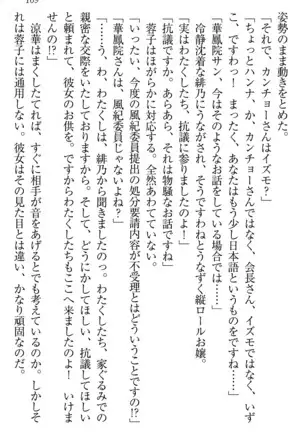 169
姿勢のまま動きをとめた。
「それで、カンチョーさんはイズモ？」
「ちょっとハンナ、か、カンチョーさんではなく、会長さん、イズモではなく、いず
こ、ですわっ！　まったく、あなたはもう少し日本語というものをですね……」
「華鳳院サン、今はそのようなお話をしている場合では……」
冷静沈着な緋乃にうながされ、そうですわねとうなずく縦ロールお嬢。
「実はわたくしたち、抗議に参りましたのよ！」
「抗議ですのぉ。あらあら、それは物騒なお話ですわ」
蓉子はほがらかに対応する。全然あわてていない。
「いったい、今度の風紀委員提出の処分要請内容が不受理とはどういうことですの!?」
「華鳳院さんは、風紀委員じゃないよね？」
「……うっ、わ、わたくしは、緋乃から聞きましたのっ。わたくしたち、家ぐるみでの
親密な交際をいたしておりますから。そして、どうにかしてほしいと、抗議してほしい
と頼まれて、彼女のお供を。ですからわたくしたちもここへ来ましたのよ！　いけま
せんの!?」
涼華はまくしたてれば、すぐに相手が音をあげるとでも考えているのか。しかしそ
れは蓉子には通用しない。彼女はその見た目とは違い、かなり頑固なのだ。